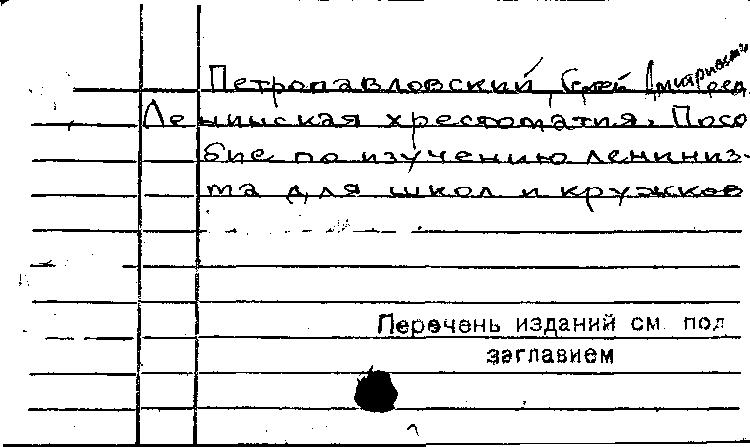 Петропавловский, Сергей Дмитриевич ред.
Ленинская хрестоматия. Посо
бие по изучению лениниз-
ма для школ и кружков
Перечень изданий см. под
заглавием